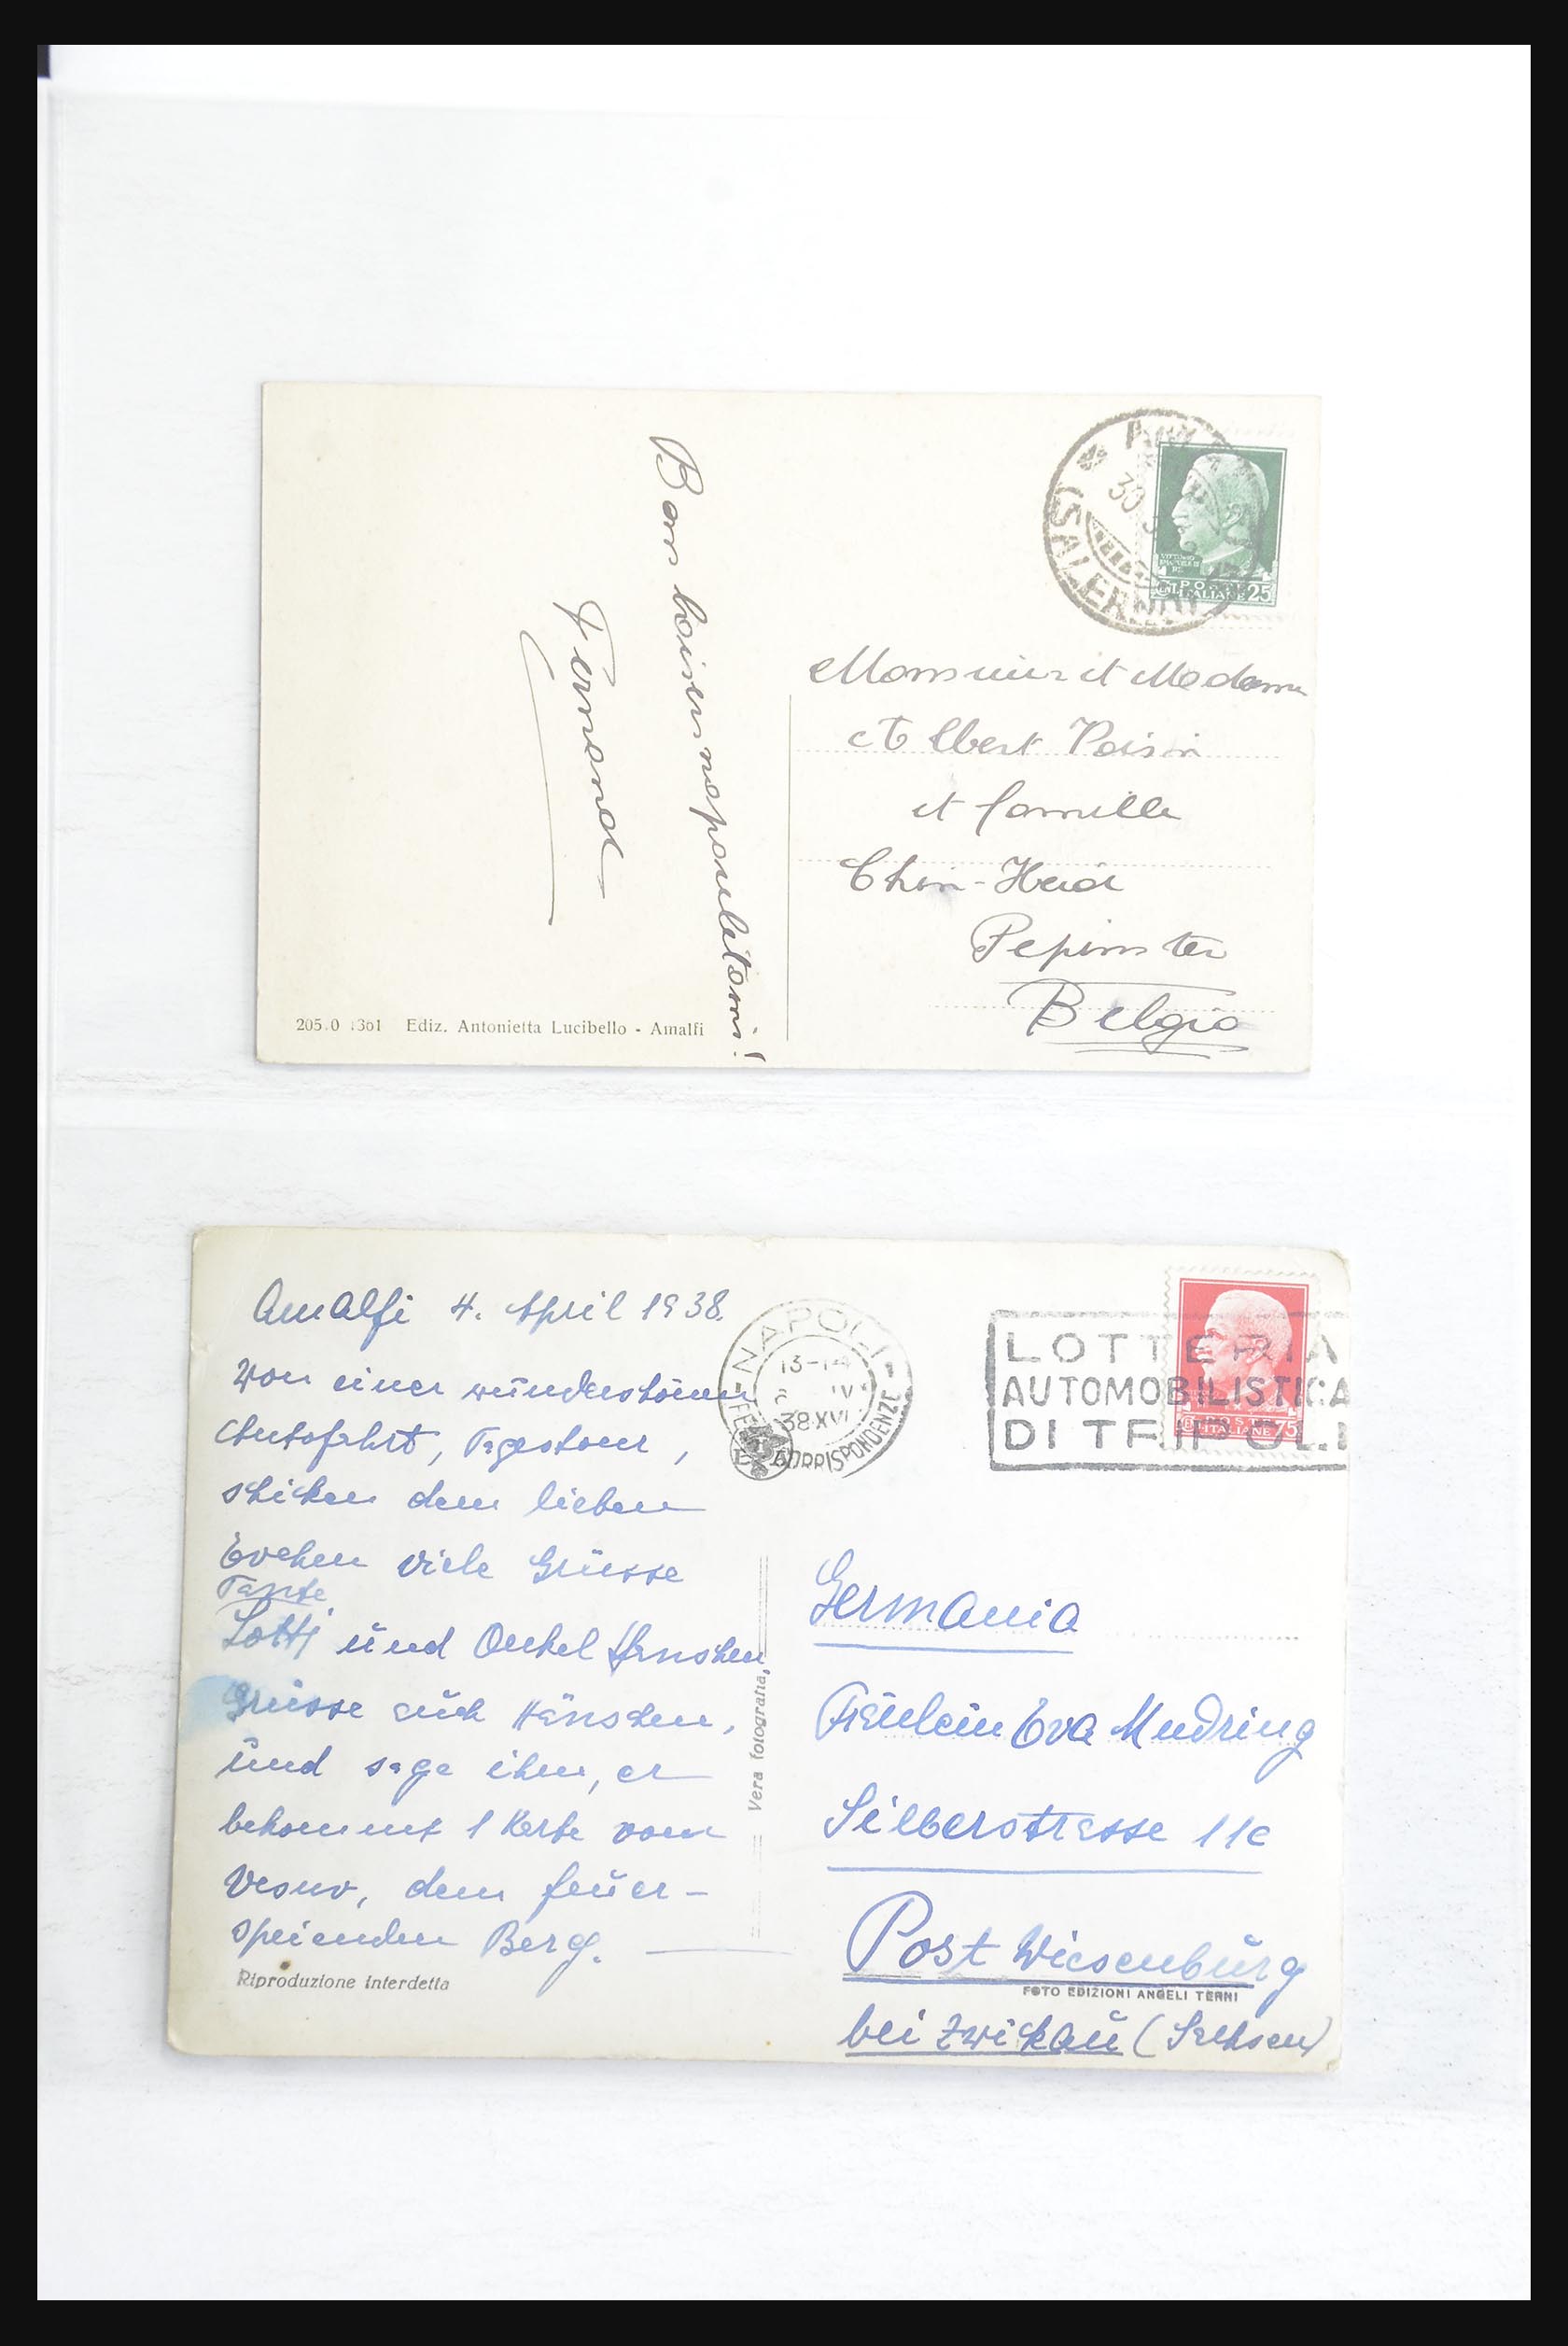 Bons baisers napoulitains!
Fernand
205.0 1361 Ediz. Antonietta Lucibello - Amalfi
30
(SALERNO)
POSTE
ITALIANE 25
Monsieur et Madame
Albert
et famille
Pepinster
Belgio
Amalfi 4. April 1938.
Von einer wunderschönen
Autofahrt, Tagestour,
schicken dem lieben
Evchen viele Grüsse
Tante
Lotti und Onkel Hänschen,
Grüsse auch Hänschen,
und sage ihm, er
bekommt 1 Karte vom
Vesuv, dem feuer-
speienden Berg.
Riproduzione interdetta
Vera fotografia
NAPOLI
13-14
IV
38 XVI
CORRISPONDENZE
LOTTERIA
AUTOMOBILISTICA
DI TRIPOLI
ITALIANE 75
Germania
Fräulein Eva Mudring
Silberstrasse 11c
Post Wiesenburg
FOTO EDIZIONI ANGELI TERNI
bei Zwickau (Sachsen)